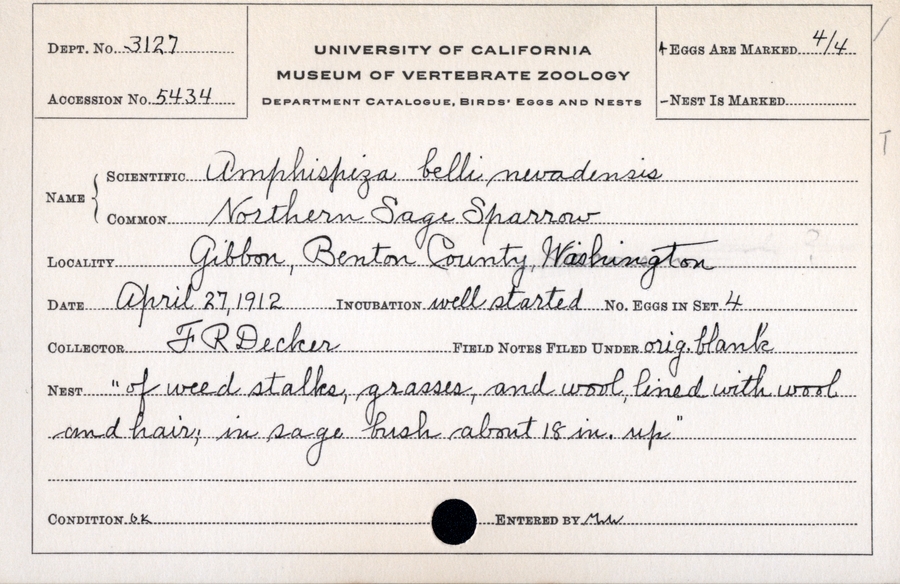 DEPT. NO. 3127
ACCESSION NO. 5434
UNIVERSITY OF CALIFORNIA
MUSEUM OF VERTEBRATE ZOOLOGY
DEPARTMENT CATALOGUE, BIRDS' EGGS AND NESTS
EGGS ARE MARKED 4/4
-NEST IS MARKED
NAME
SCIENTIFIC Amphispiza belli nevadensis
COMMON Northern Sage Sparrow
LOCALITY Gibbon, Benton County, Washington ?
DATE April 27, 1912 INCUBATION well started NO. EGGS IN SET 4
COLLECTOR F R Decker FIELD NOTES FILED UNDER orig. blank
NEST "of weed stalks, grasses, and wool, lined with wool
and hair; in sage bush about 18 in. up"
CONDITION ok ENTERED BY